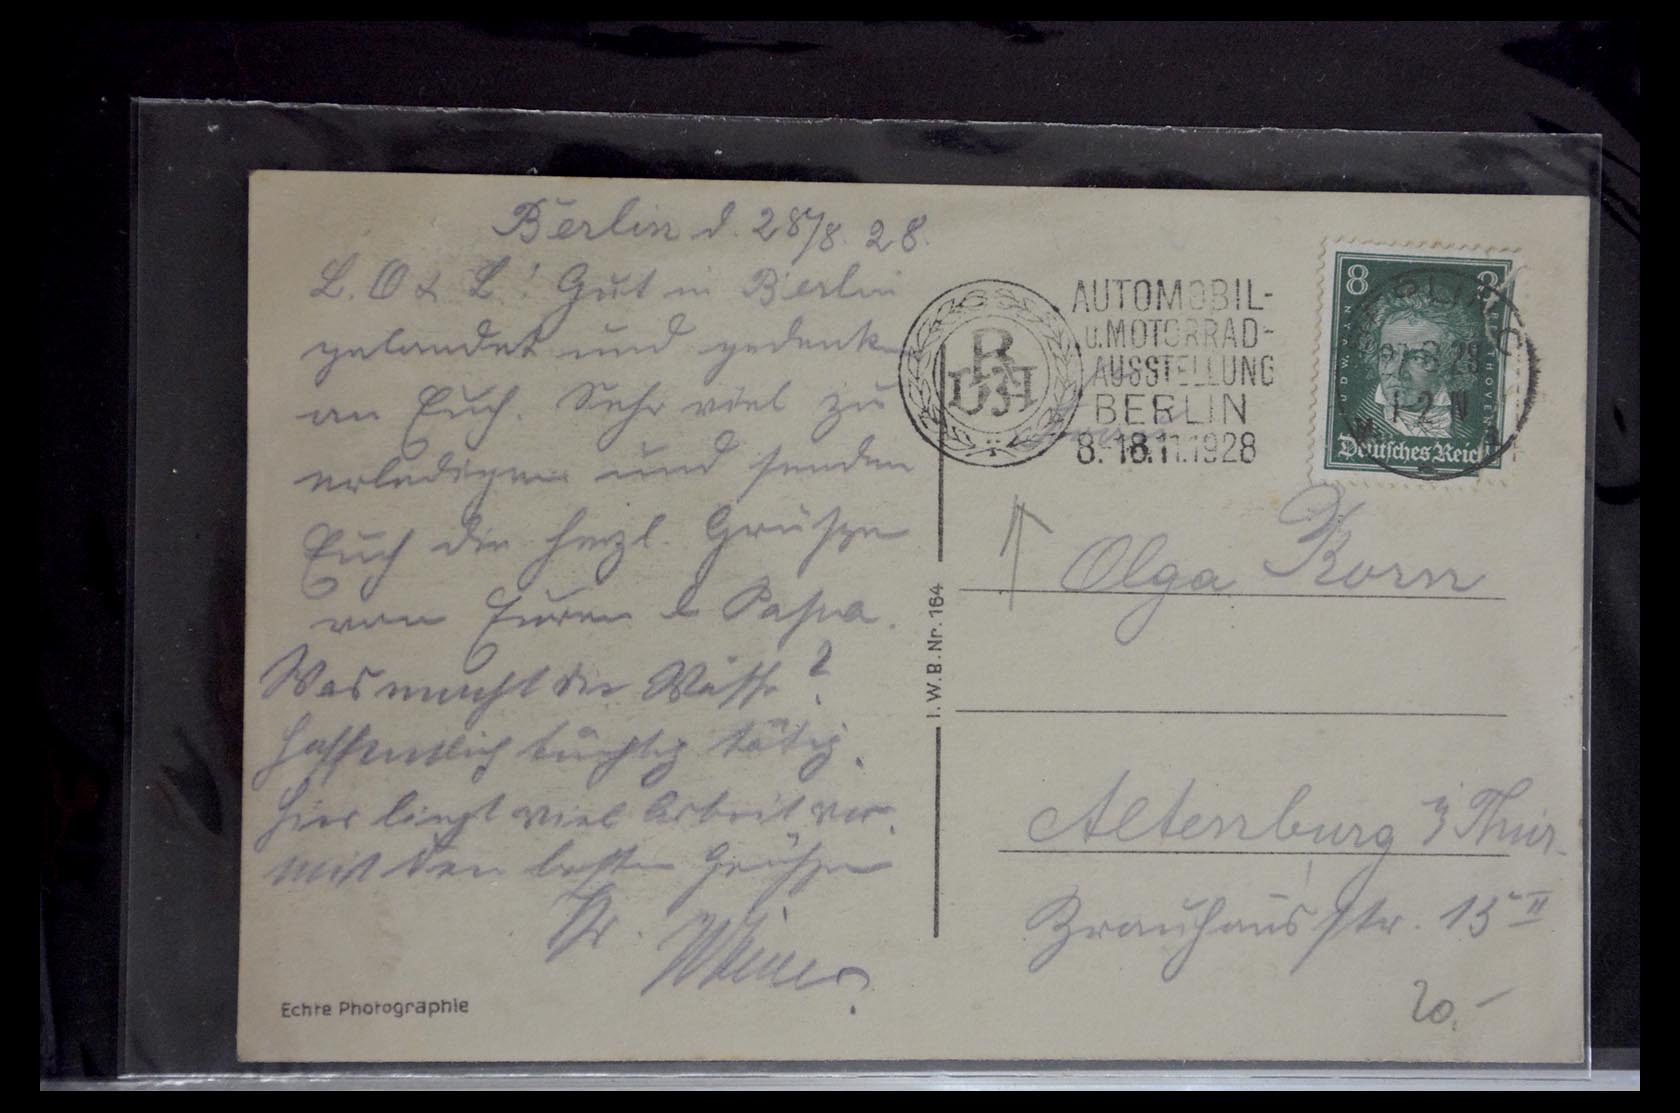 Berlin d. 28/8. 28.
L. O & L! Gut in Berlin
gelandet und gedenke
an Euch. Sehr viel zu
erledigen und senden
Euch die herzl. Grüße
von Euren Papa.
Was macht die
Hoffentlich tüchtig tätig.
Hier liegt viel Arbeit vor.
mit den besten Grüßen
Echte Photographie
I.W.B.Nr. 164
DR
AUTOMOBIL-
u. MOTORRAD-
AUSSTELLUNG
BERLIN
8.-18.11.1928
8 8
LUDW. VAN BEETHOVEN
Deutsches Reich
Olga Korn
Altenburg i/ Thür.
Brauhausstr. 15 II
20,-